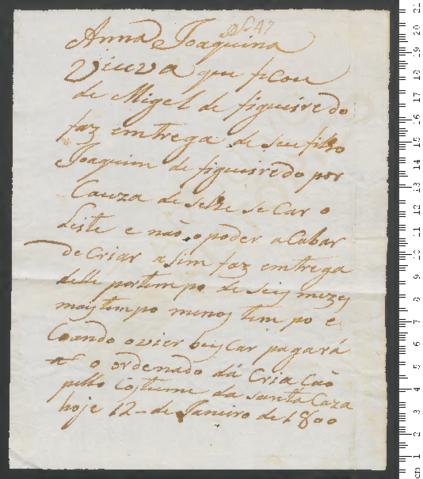 Anna Joaquina
Viuva que ficou
de Migel de figueiredo
faz emtrega de seu filho
Joaquim de figueiredo por
Cauza de selhe secar o
Leite e não o poder acabar
de Criar asim faz emtrega
delle por tempo de seis mezes
mais tempo menos tempo e
Coando o vier buscar pagará
o ordenado da Criacão
pello Costume da Santa Caza
hoje 12 de Janeiro de 1800